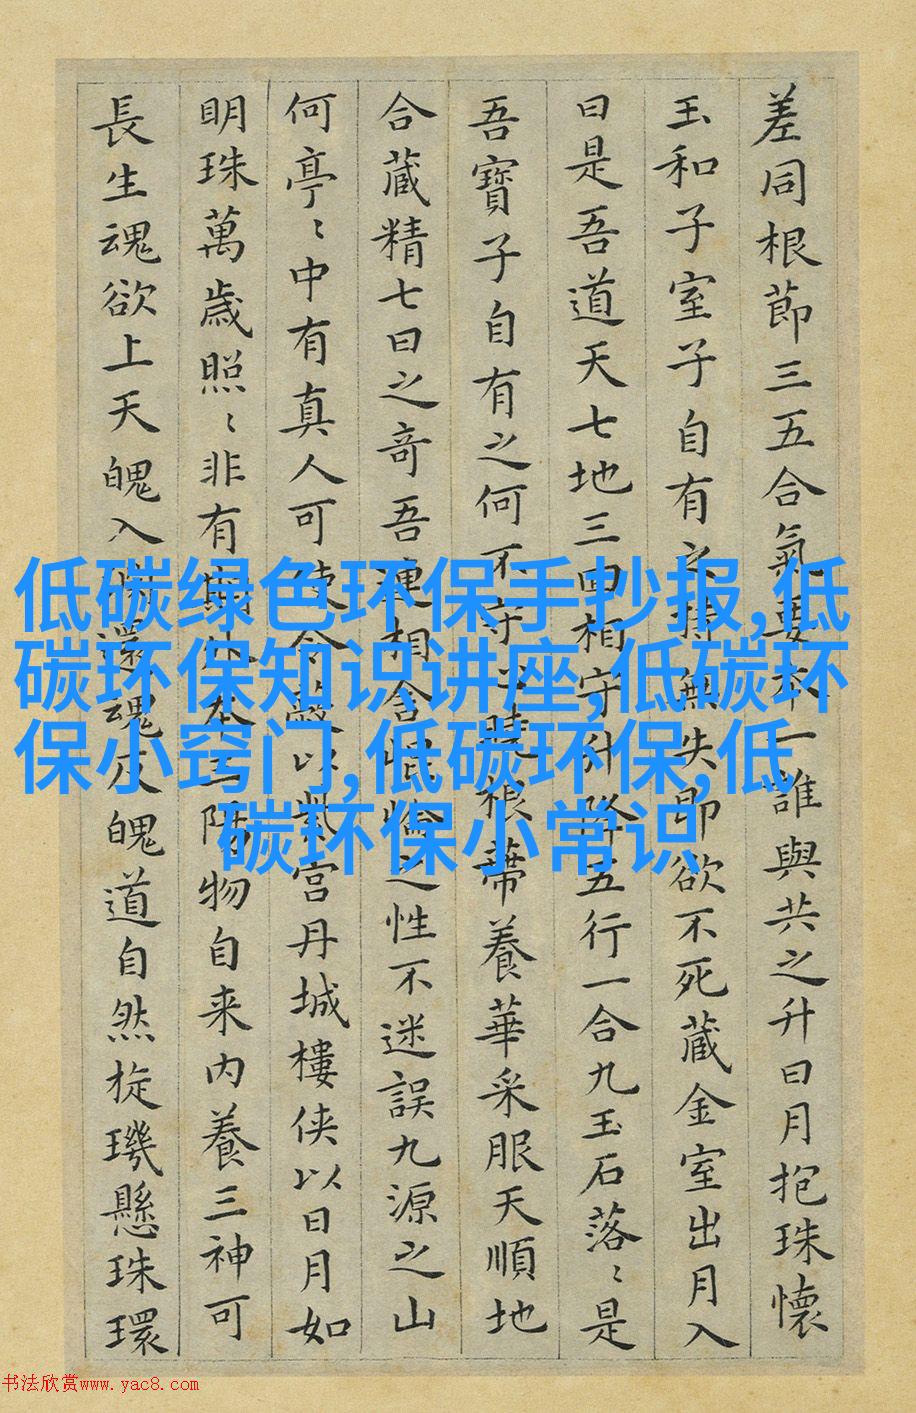 差同根節三五合氣要本一誰與共之升日月抱珠懷
玉和子室子自有之持無失即欲不死藏金室出月入
日是吾道天七地三回相守升降五行一合九玉石落〻是
吾寶子自有之何不守心曉根蒂養華采服天順地
合藏精七日之奇吾連相合崐崘之性不迷誤九源之山
何亭〻中有真人可使令蔽以紫宮丹城樓侠以日月如
明珠萬歲照〻非有期外本三陽物自来内養三神可
長生魂欲上天魄入淵還魂反魄道自然旋璣懸珠環
低碳绿色环保手抄报,低
碳环保知识讲座,低碳环
保小窍门,低碳环保,低
碳环保小常识
书法欣赏www.yac8.com